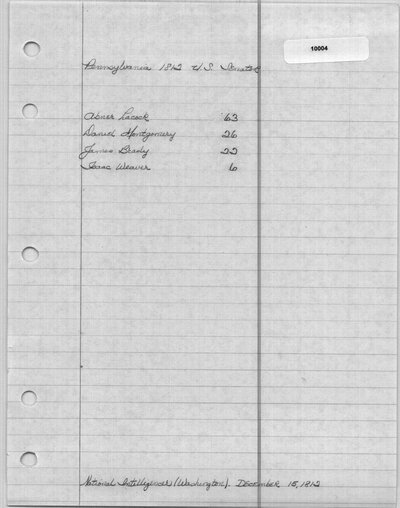 10004
Pennsylvania 1812 U.S. Senator
Abner Lacock 63
Daniel Montgomery 26
James Brady 22
Isaac Weaver 6
National Intelligencer (Washington). December 15, 1812